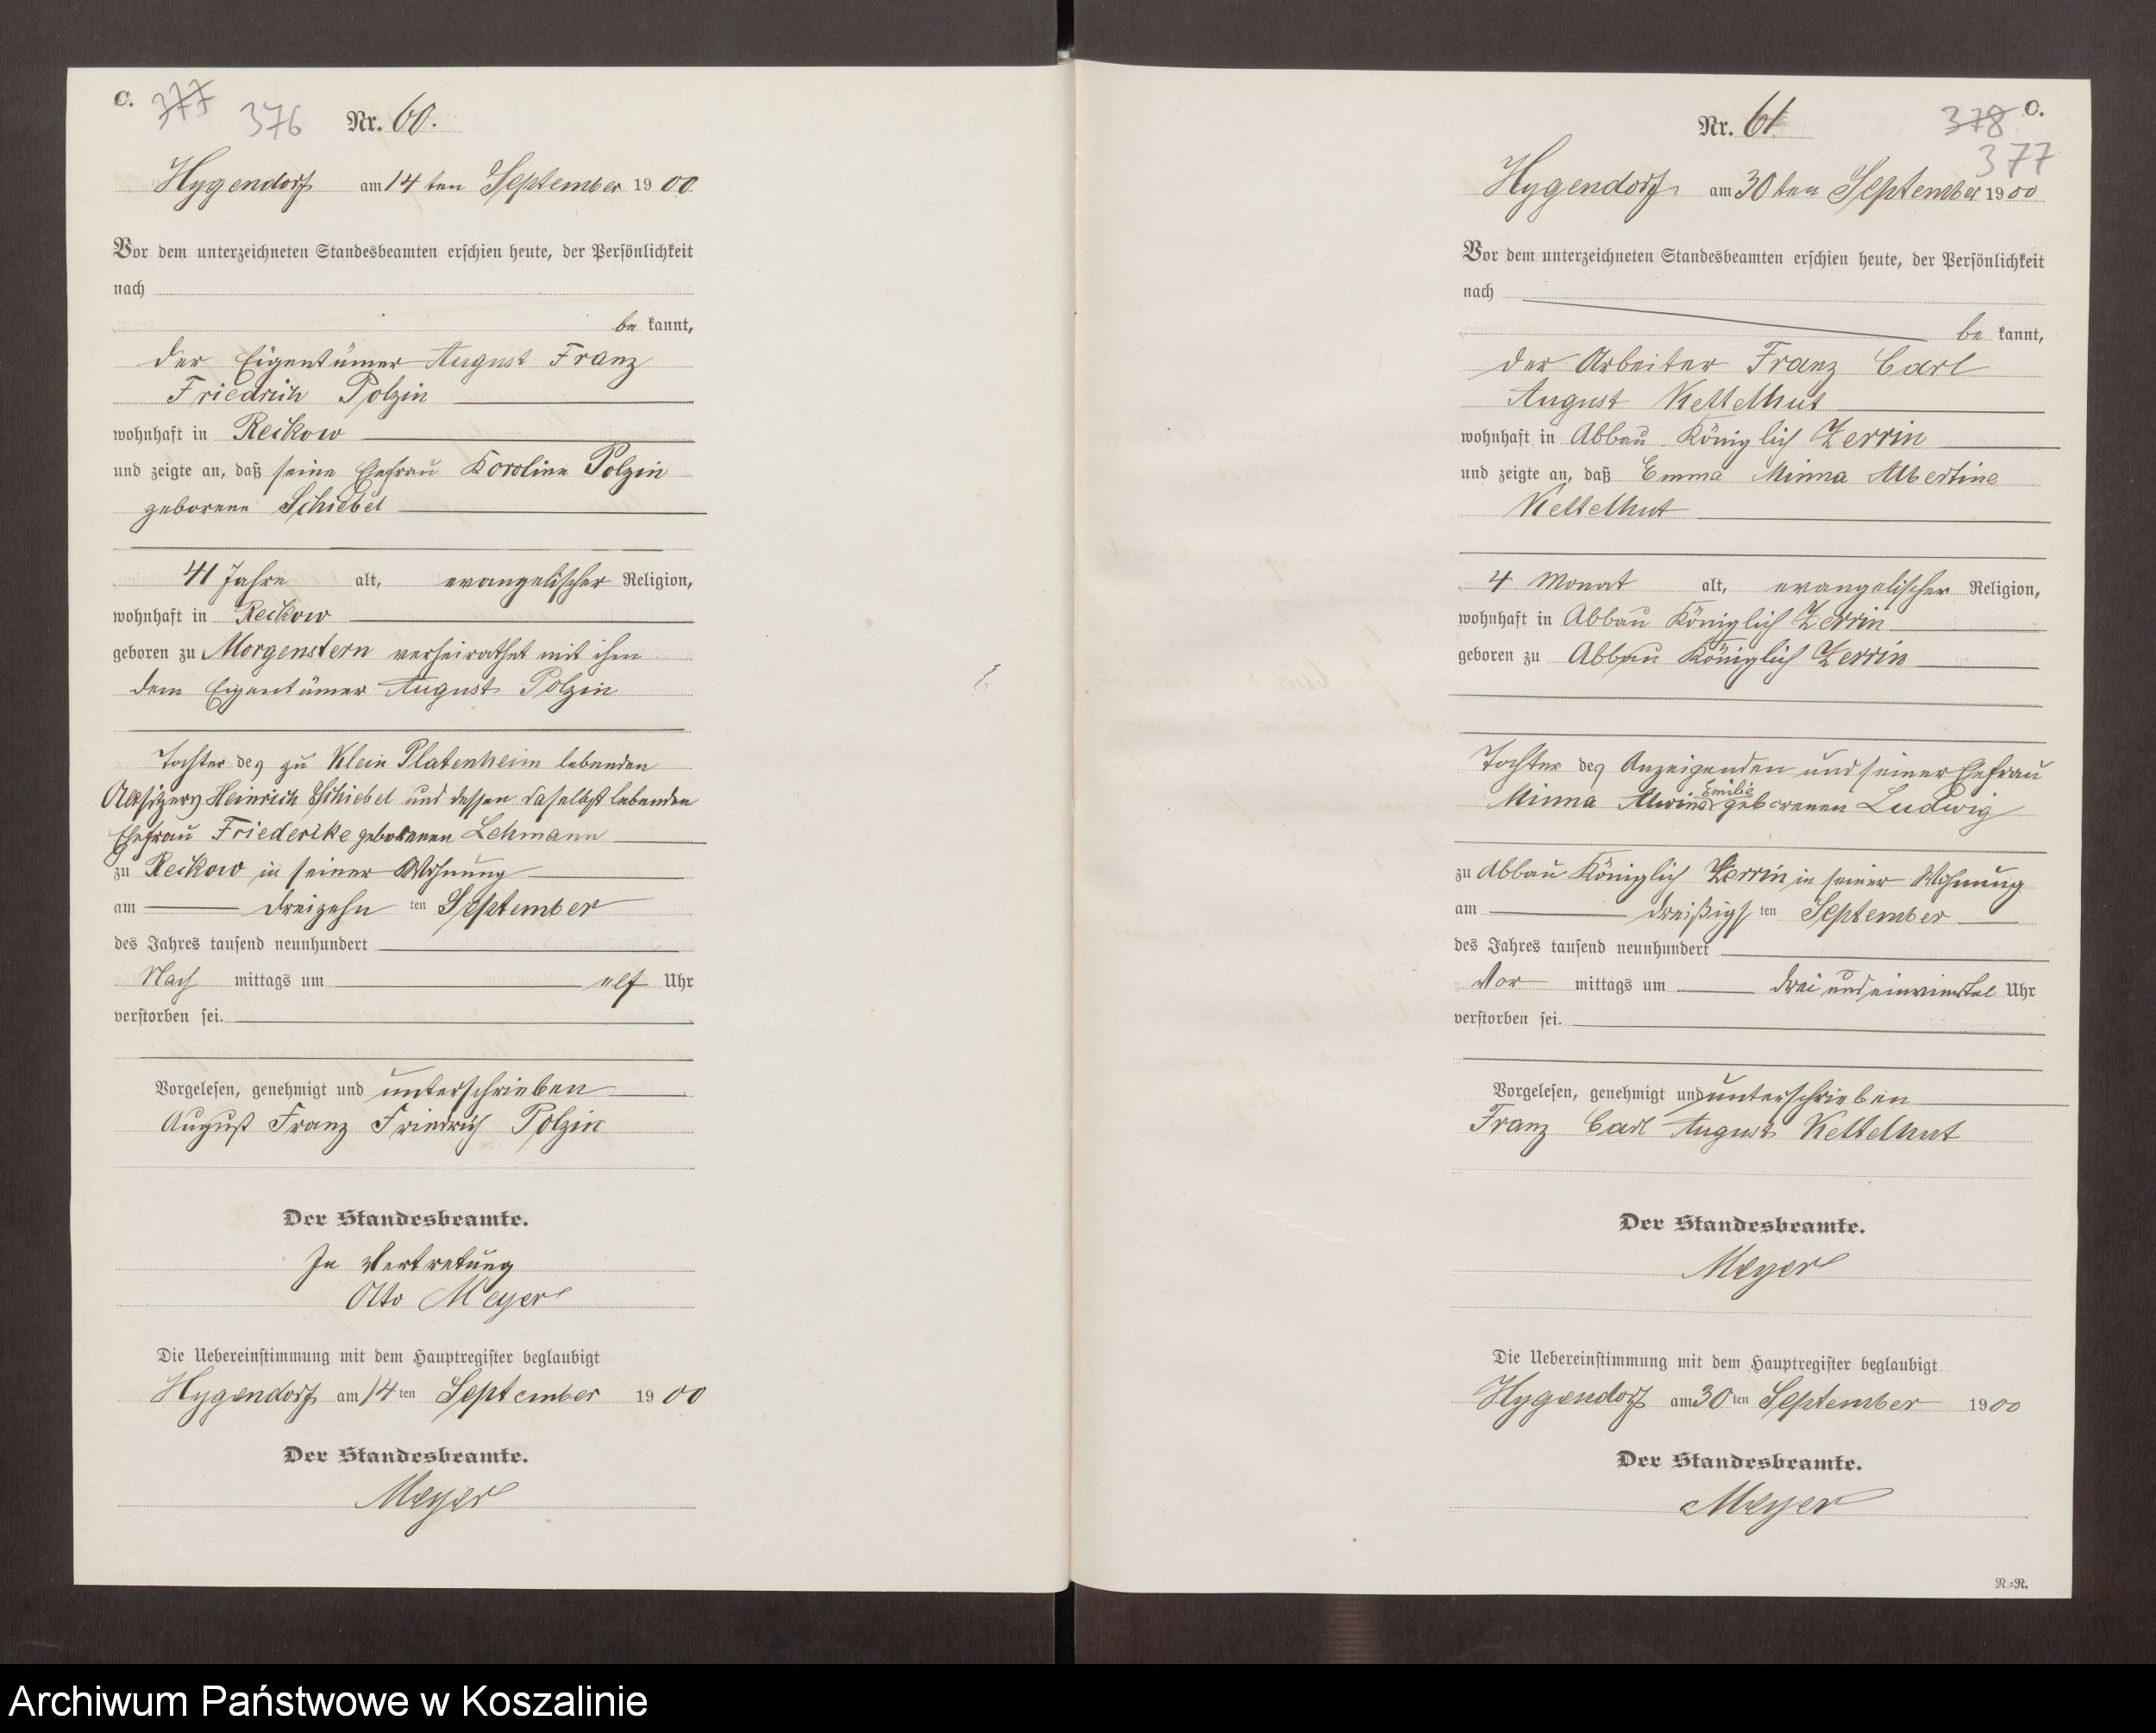 C.
377
376
Nr. 60.
Hygendorf am 14 ten September 1900
Vor dem unterzeichneten Standesbeamten erschien heute, der Persönlichkeit
nach
be kannt,
der Eigentümer August Franz
Friedrich Polzin
wohnhaft in Reckow
und zeigte an, daß seine Ehefrau Karoline Polzin
geborene Schiebel
41 Jahre alt, evangelischer Religion,
wohnhaft in Reckow
geboren zu Morgenstern verheirathet mit ihm
dem Eigentümer August Polzin
Tochter des zu Klein Platenheim lebenden
Altsitzers Heinrich Schiebel und dessen daselbst lebenden
Ehefrau Friederike geborenen Lehmann
zu Reckow in seiner Wohnung
am dreizehn ten September
des Jahres tausend neunhundert
Nach mittags um elf Uhr
verstorben sei.
Vorgelesen, genehmigt und unterschrieben
August Franz Friedrich Polzin
Der Standesbeamte.
In Vertretung
Otto Meyer
Die Uebereinstimmung mit dem Hauptregister beglaubigt
Hygendorf am 14 ten September 1900
Der Standesbeamte.
Meyer
Nr. 61
378 C.
377
Hygendorf am 30 ten September 1900
Vor dem unterzeichneten Standesbeamten erschien heute, der Persönlichkeit
nach
be kannt,
der Arbeiter Franz Carl
August Kettelhut
wohnhaft in Abbau Königlich Zerrin
und zeigte an, daß Emma Minna Albertine
Kettelhut
4 Monat alt, evangelischer Religion,
wohnhaft in Abbau Königlich Zerrin
geboren zu Abbau Königlich Zerrin
Tochter des Anzeigenden und seiner Ehefrau
Emilie
Minna Alwine geborenen Ludwig
zu Abbau Königlich Zerrin in seiner Wohnung
am dreißigs ten September
des Jahres tausend neunhundert
Vor mittags um drei und einviertel Uhr
verstorben sei.
Vorgelesen, genehmigt und unterschrieben
Franz Carl August Kettelhut
Der Standesbeamte.
Meyer
Die Uebereinstimmung mit dem Hauptregister beglaubigt
Hygendorf am 30 ten September 1900
Der Standesbeamte.
Meyer
N.=R.
Archiwum Państwowe w Koszalinie